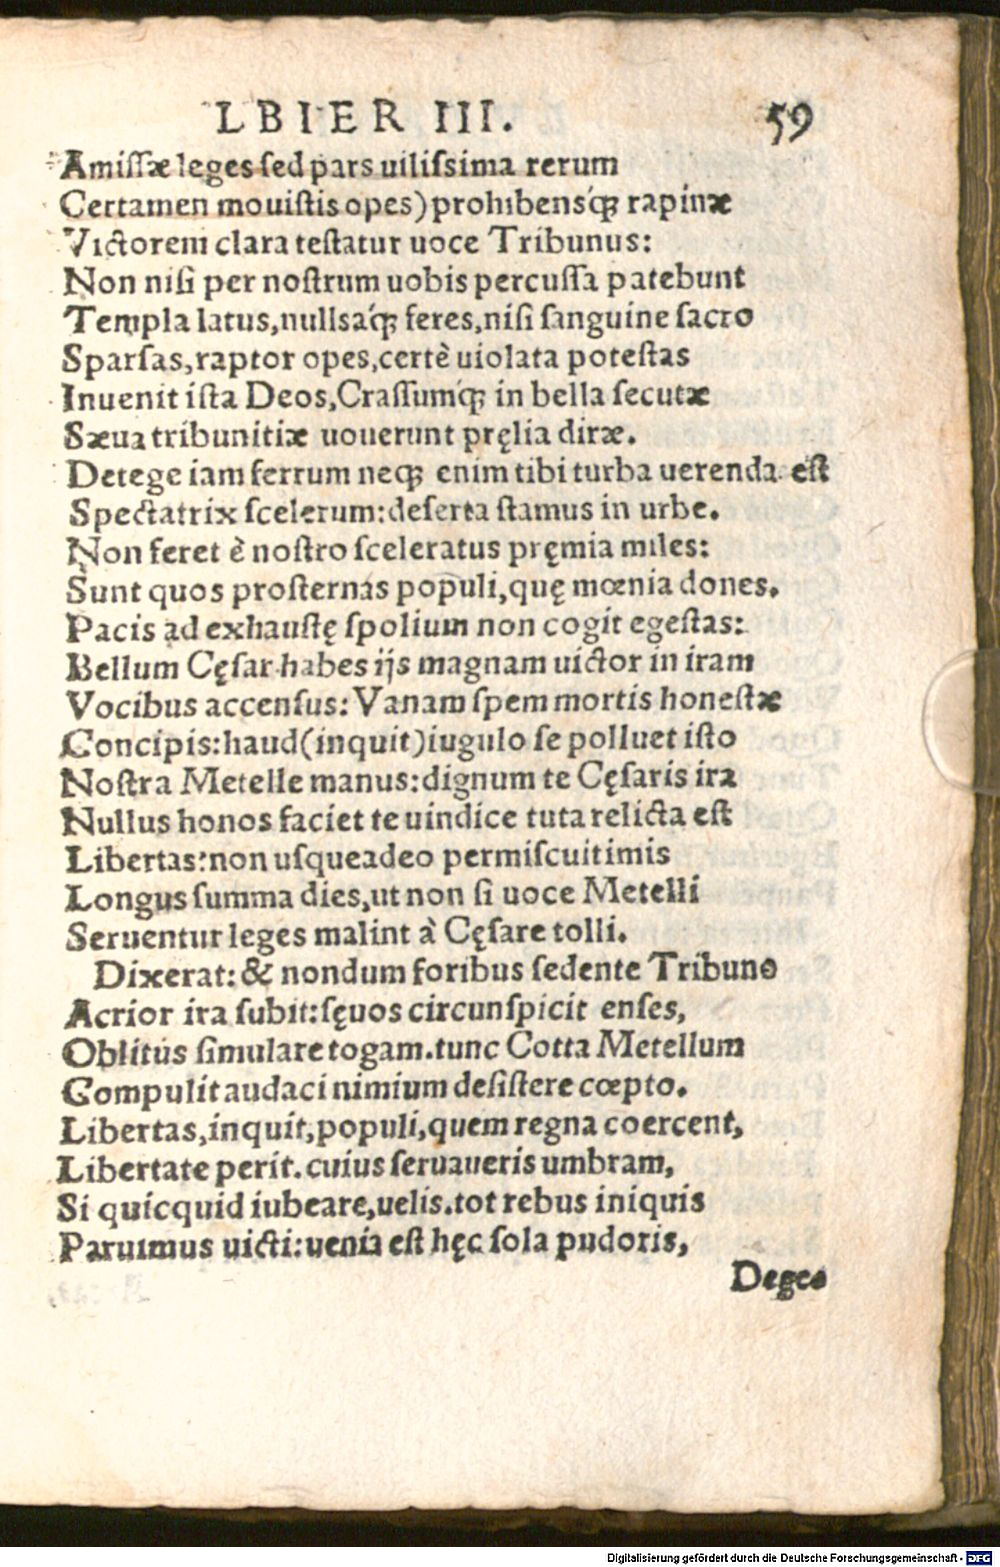 LBIER III. 59
Amissæ leges sed pars uilissima rerum
Certamen mouistis opes) prohibensq́ꝫ rapinæ
Victorem clara testatur uoce Tribunus:
Non nisi per nostrum uobis percussa patebunt
Templa latus, nullsaq́ꝫ feres, nisi sanguine sacro
Sparsas, raptor opes, certè uiolata potestas
Inuenit ista Deos, Crassumq́ꝫ in bella secutæ
Sæua tribunitiæ uouerunt pręlia diræ.
Detege iam ferrum neqꝫ enim tibi turba uerenda est
Spectatrix scelerum: deserta stamus in urbe.
Non feret è nostro sceleratus pręmia miles:
Sunt quos prosternas populi, quę mœnia dones.
Pacis ad exhaustę spolium non cogit egestas:
Bellum Cęsar habes ijs magnam uictor in iram
Vocibus accensus: Vanam spem mortis honestæ
Concipis: haud (inquit) iugulo se polluet isto
Nostra Metelle manus: dignum te Cęsaris ira
Nullus honos faciet te uindice tuta relicta est
Libertas: non usqueadeo permiscuit imis
Longus summa dies, ut non si uoce Metelli
Seruentur leges malint à Cęsare tolli.
Dixerat: & nondum foribus sedente Tribuno
Acrior ira subit: sęuos circunspicit enses,
Oblitus simulare togam. tunc Cotta Metellum
Compulit audaci nimium desistere cœpto.
Libertas, inquit, populi, quem regna coercent,
Libertate perit. cuius seruaueris umbram,
Si quicquid iubeare, uelis. tot rebus iniquis
Paruimus uicti: uenia est hęc sola pudoris,
Degeo
Digitalisierung gefördert durch die Deutsche Forschungsgemeinschaft - DFG